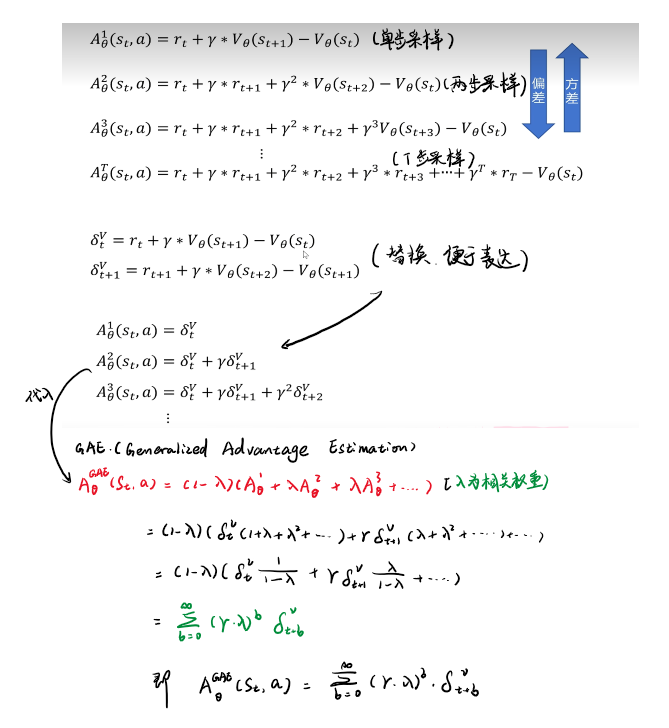 A_θ^1(s_t, a) = r_t + γ * V_θ(s_{t+1}) − V_θ(s_t) (单步采样)
A_θ^2(s_t, a) = r_t + γ * r_{t+1} + γ^2 * V_θ(s_{t+2}) − V_θ(s_t) (两步采样)
偏差
方差
A_θ^3(s_t, a) = r_t + γ * r_{t+1} + γ^2 * r_{t+2} + γ^3 V_θ(s_{t+3}) − V_θ(s_t)
⋮
(T步采样)
A_θ^T(s_t, a) = r_t + γ * r_{t+1} + γ^2 * r_{t+2} + γ^3 * r_{t+3} + ⋯ + γ^T * r_T − V_θ(s_t)
δ_t^V = r_t + γ * V_θ(s_{t+1}) − V_θ(s_t)
δ_{t+1}^V = r_{t+1} + γ * V_θ(s_{t+2}) − V_θ(s_{t+1})
(替换. 便于表达)
A_θ^1(s_t, a) = δ_t^V
A_θ^2(s_t, a) = δ_t^V + γδ_{t+1}^V
代入
A_θ^3(s_t, a) = δ_t^V + γδ_{t+1}^V + γ^2δ_{t+2}^V
⋮
GAE.(Generalized Advantage Estimation)
A_θ^{GAE}(S_t, a) = (1-λ)(A_θ^1 + λA_θ^2 + λA_θ^3 + ....) [λ为相关权重)
= (1-λ)(δ_t^V(1+λ+λ^2+...)+γδ_{t+1}^V(λ+λ^2+.....)+...)
= (1-λ)(δ_t^V 1/(1-λ) + γδ_{t+1}^V λ/(1-λ) + ....)
= ∑_{b=0}^∞ (γ·λ)^b δ_{t+b}^V
即 A_θ^{GAE}(S_t, a) = ∑_{b=0}^∞ (γ·λ)^b · δ_{t+b}^V